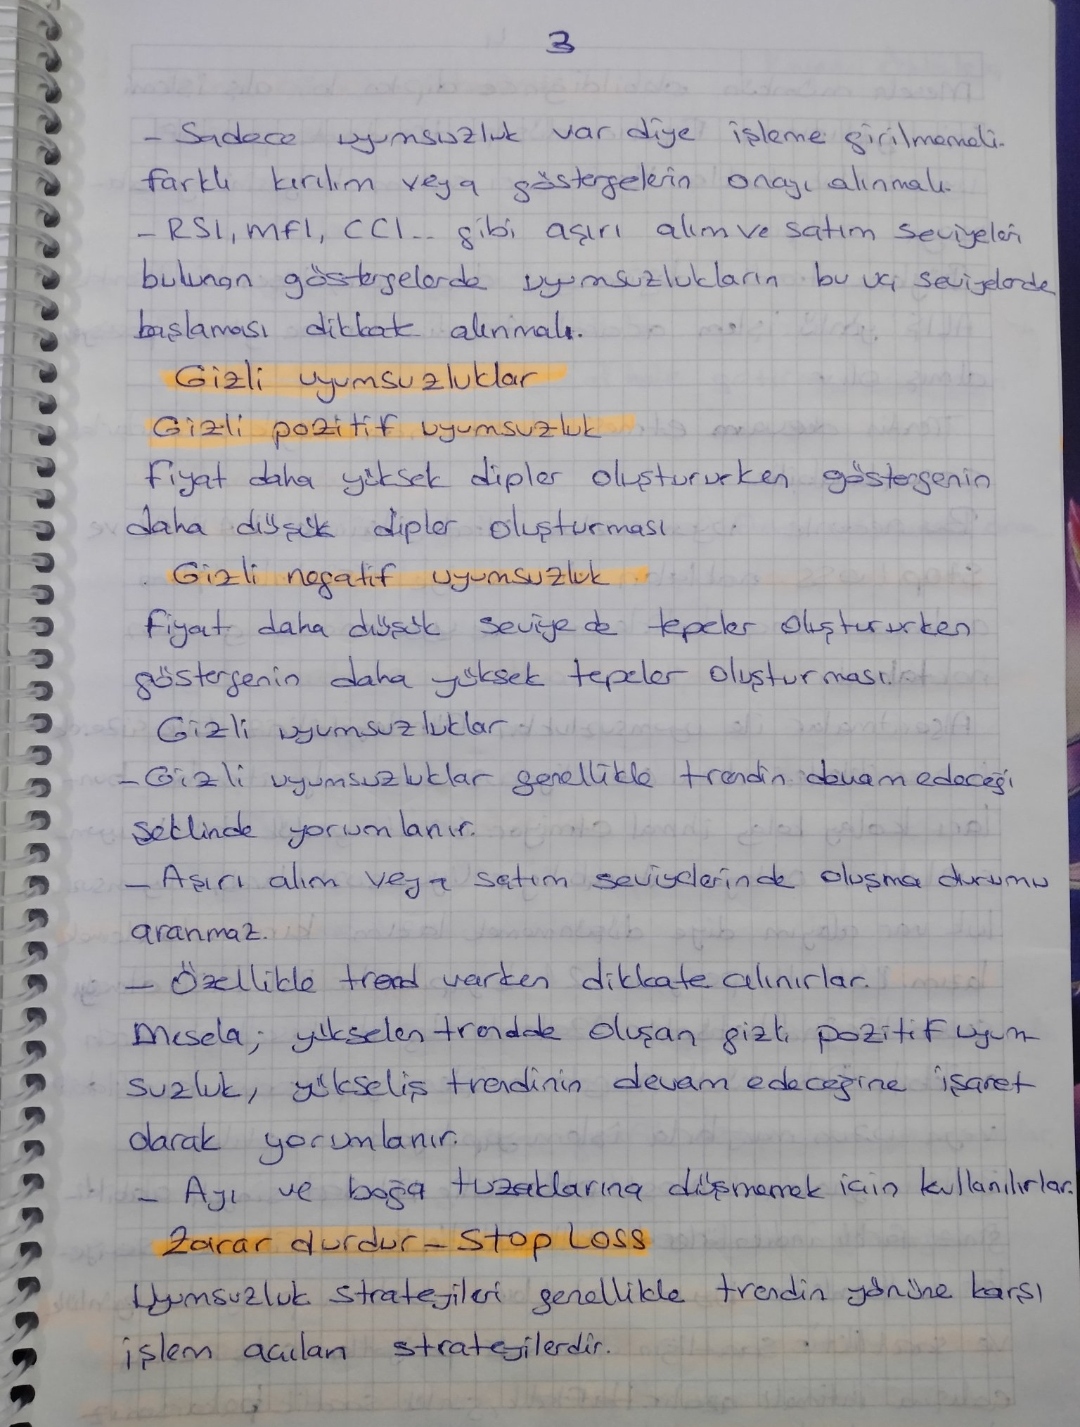 3
- Sadece uyumsuzluk var diye işleme girilmemeli.
farklı kırılım veya göstergelerin onayı alınmalı.
- RSI, MFI, CCI.. gibi aşırı alım ve satım seviyeleri
bulunan göstergelerde uyumsuzlukların bu uç seviyelerde
başlaması dikkat alınmalı.
Gizli uyumsuzluklar
Gizli pozitif uyumsuzluk
Fiyat daha yüksek dipler oluştururken göstergenin
daha düşük dipler oluşturması
Gizli negatif uyumsuzluk
Fiyat daha düşük seviyede tepeler oluştururken
göstergenin daha yüksek tepeler oluşturması.
Gizli uyumsuzluklar
- Gizli uyumsuzluklar genellikle trendin devam edeceği
şeklinde yorumlanır.
- Aşırı alım veya satım seviyelerinde oluşma durumu
aranmaz.
- Özellikle trend varken dikkate alınırlar.
Mesela; yükselen trendde oluşan gizli pozitif uyum
suzluk, yükseliş trendinin devam edeceğine işaret
olarak yorumlanır.
- Ayı ve boğa tuzaklarına düşmemek için kullanılırlar.
Zarar durdur - Stop Loss
Uyumsuzluk stratejileri genellikle trendin yönüne karşı
işlem açılan stratejilerdir.